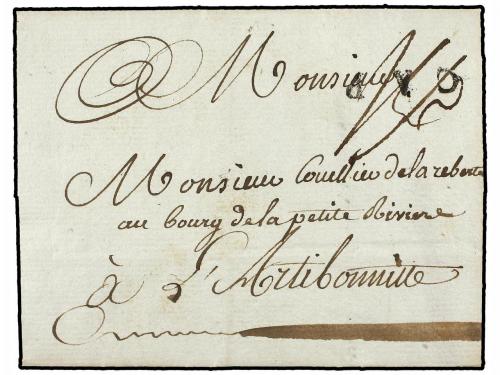 Monsieur
Monsieur Couillieu de la reberte
au bourg de la petite Riviere
à L'Artibonnitte